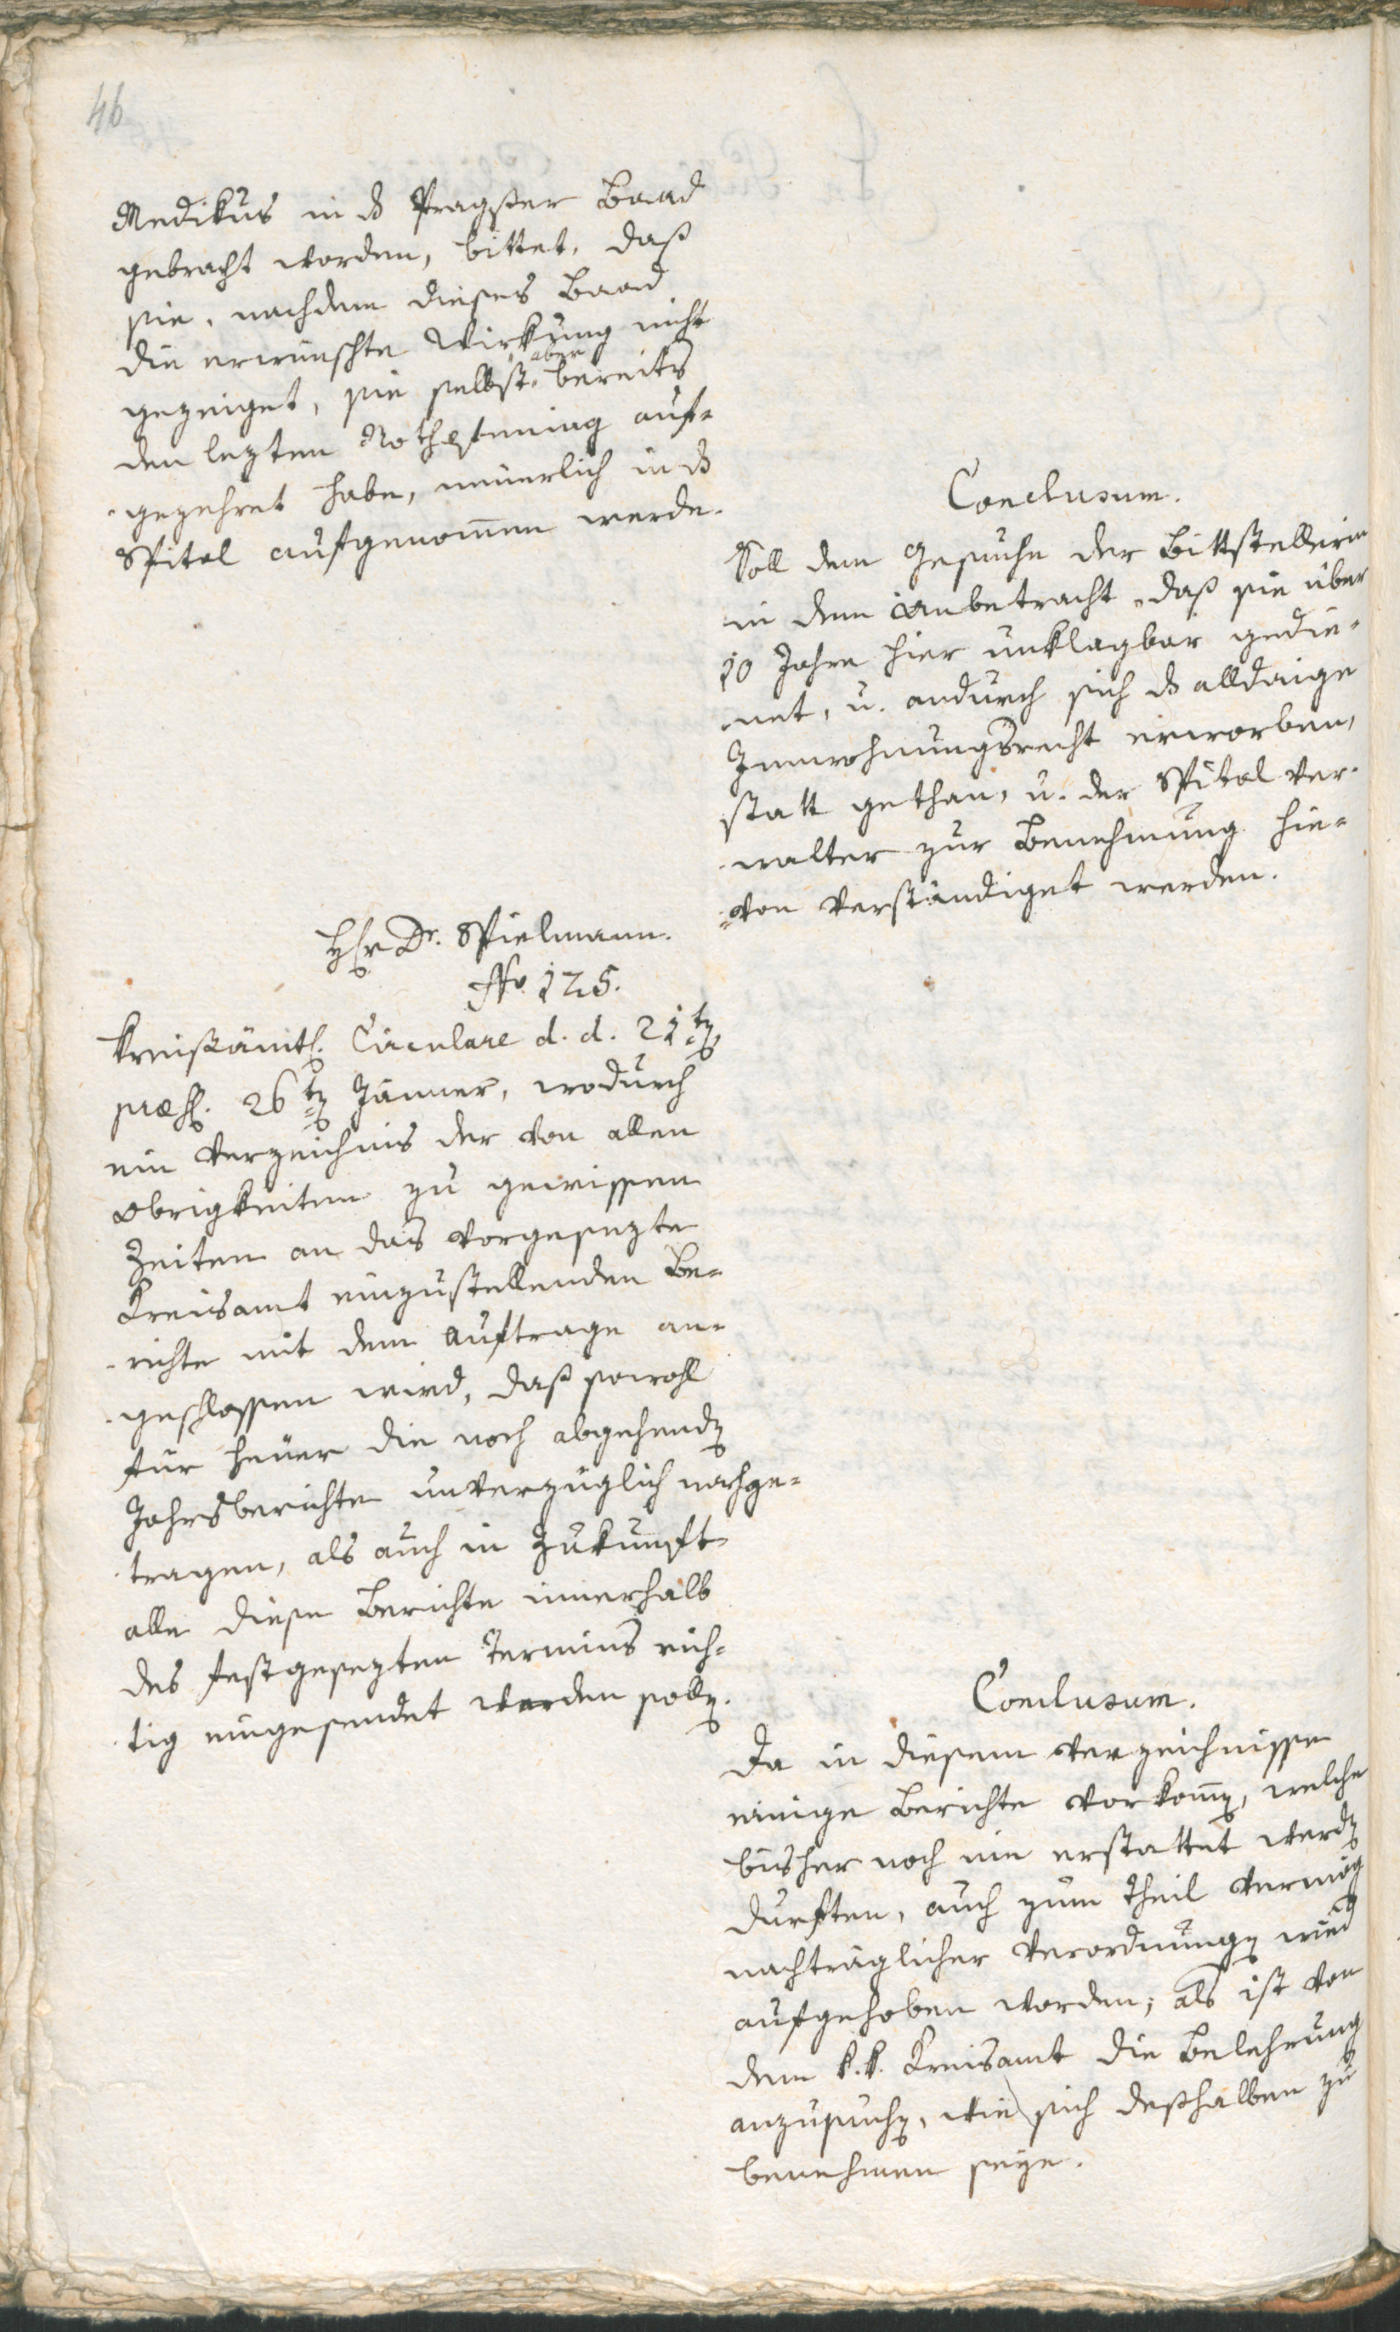 46
Medikus in ds Pragßer Baad
gebracht worden, bittet, daß
sie, nachdem dieses Baad
die erwünschte Wirkung nicht
gezeiget, sie selbst aber bereits
den lezten Nothpfening auf-
gezehret habe, neuerlich in ds
Spital aufgenom̄en werde.
Conclusum.
Soll dem Gesuche der Bittstellerin
in dem Anbetracht, daß sie über
10 Jahre hier unklagbar gedie-
net, u. andurch sich ds alldaige
Innwohnungsrecht erworben,
statt gethan, u. der Spital ver-
walter zur Benehmung hie-
von verständiget werden.
Hr Dr. Spielmann.
No 125.
Kreißämtl. Circulare d. d. 21ten
præs. 26ten Jänner, wodurch
ein Verzeichnis der von allen
Obrigkeiten zu gewissen
Zeiten an das vorgesezte
Kreisamt einzustellenden Be-
richte mit dem Auftrage an-
geschlossen wird, daß sowohl
für heuer die noch abgehenden
Jahrsberichte unverzüglich nachge-
tragen, als auch in Zukunft
alle diese Berichte innerhalb
des festgesezten Termins rich-
tig eingesendet werden sollen.
Conclusum.
Da in diesem Verzeichnisse
einige Berichte vorkom̄en, welche
bisher noch nie erstattet werden
durften, auch zum Theil vermög
nachträglicher Verordnungen wied
aufgehoben worden; als ist von
dem k.k. Kreisamt die Belehrung
anzusuchen, wie sich deßhalben zu
benehmen seye.